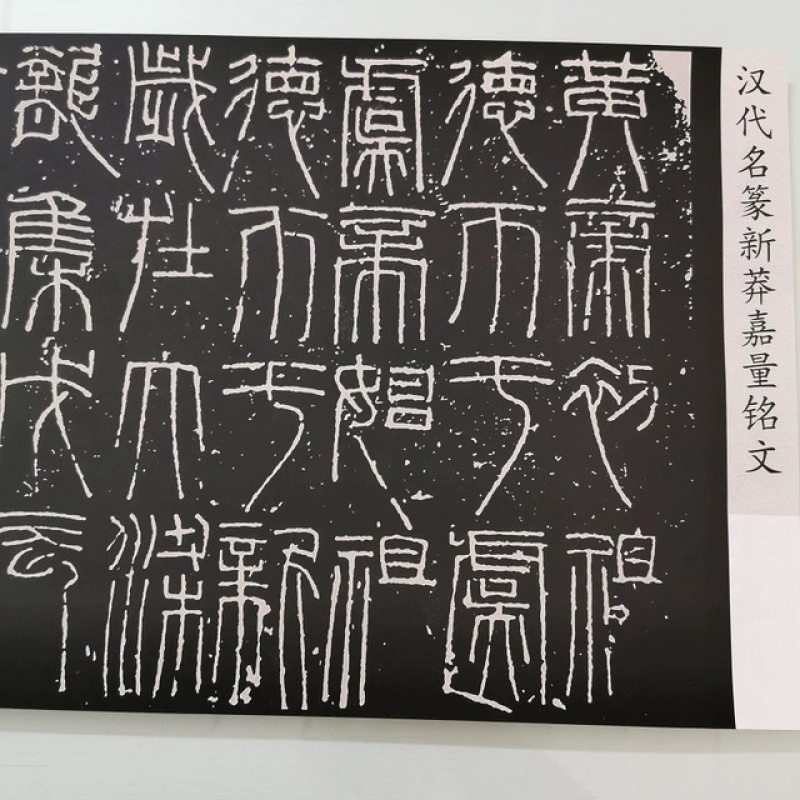 汉代名篆新莽嘉量铭文
黃帝初祖
德帀于虞
虞帝始祖
德帀于新
歲在大梁
龍集戊辰